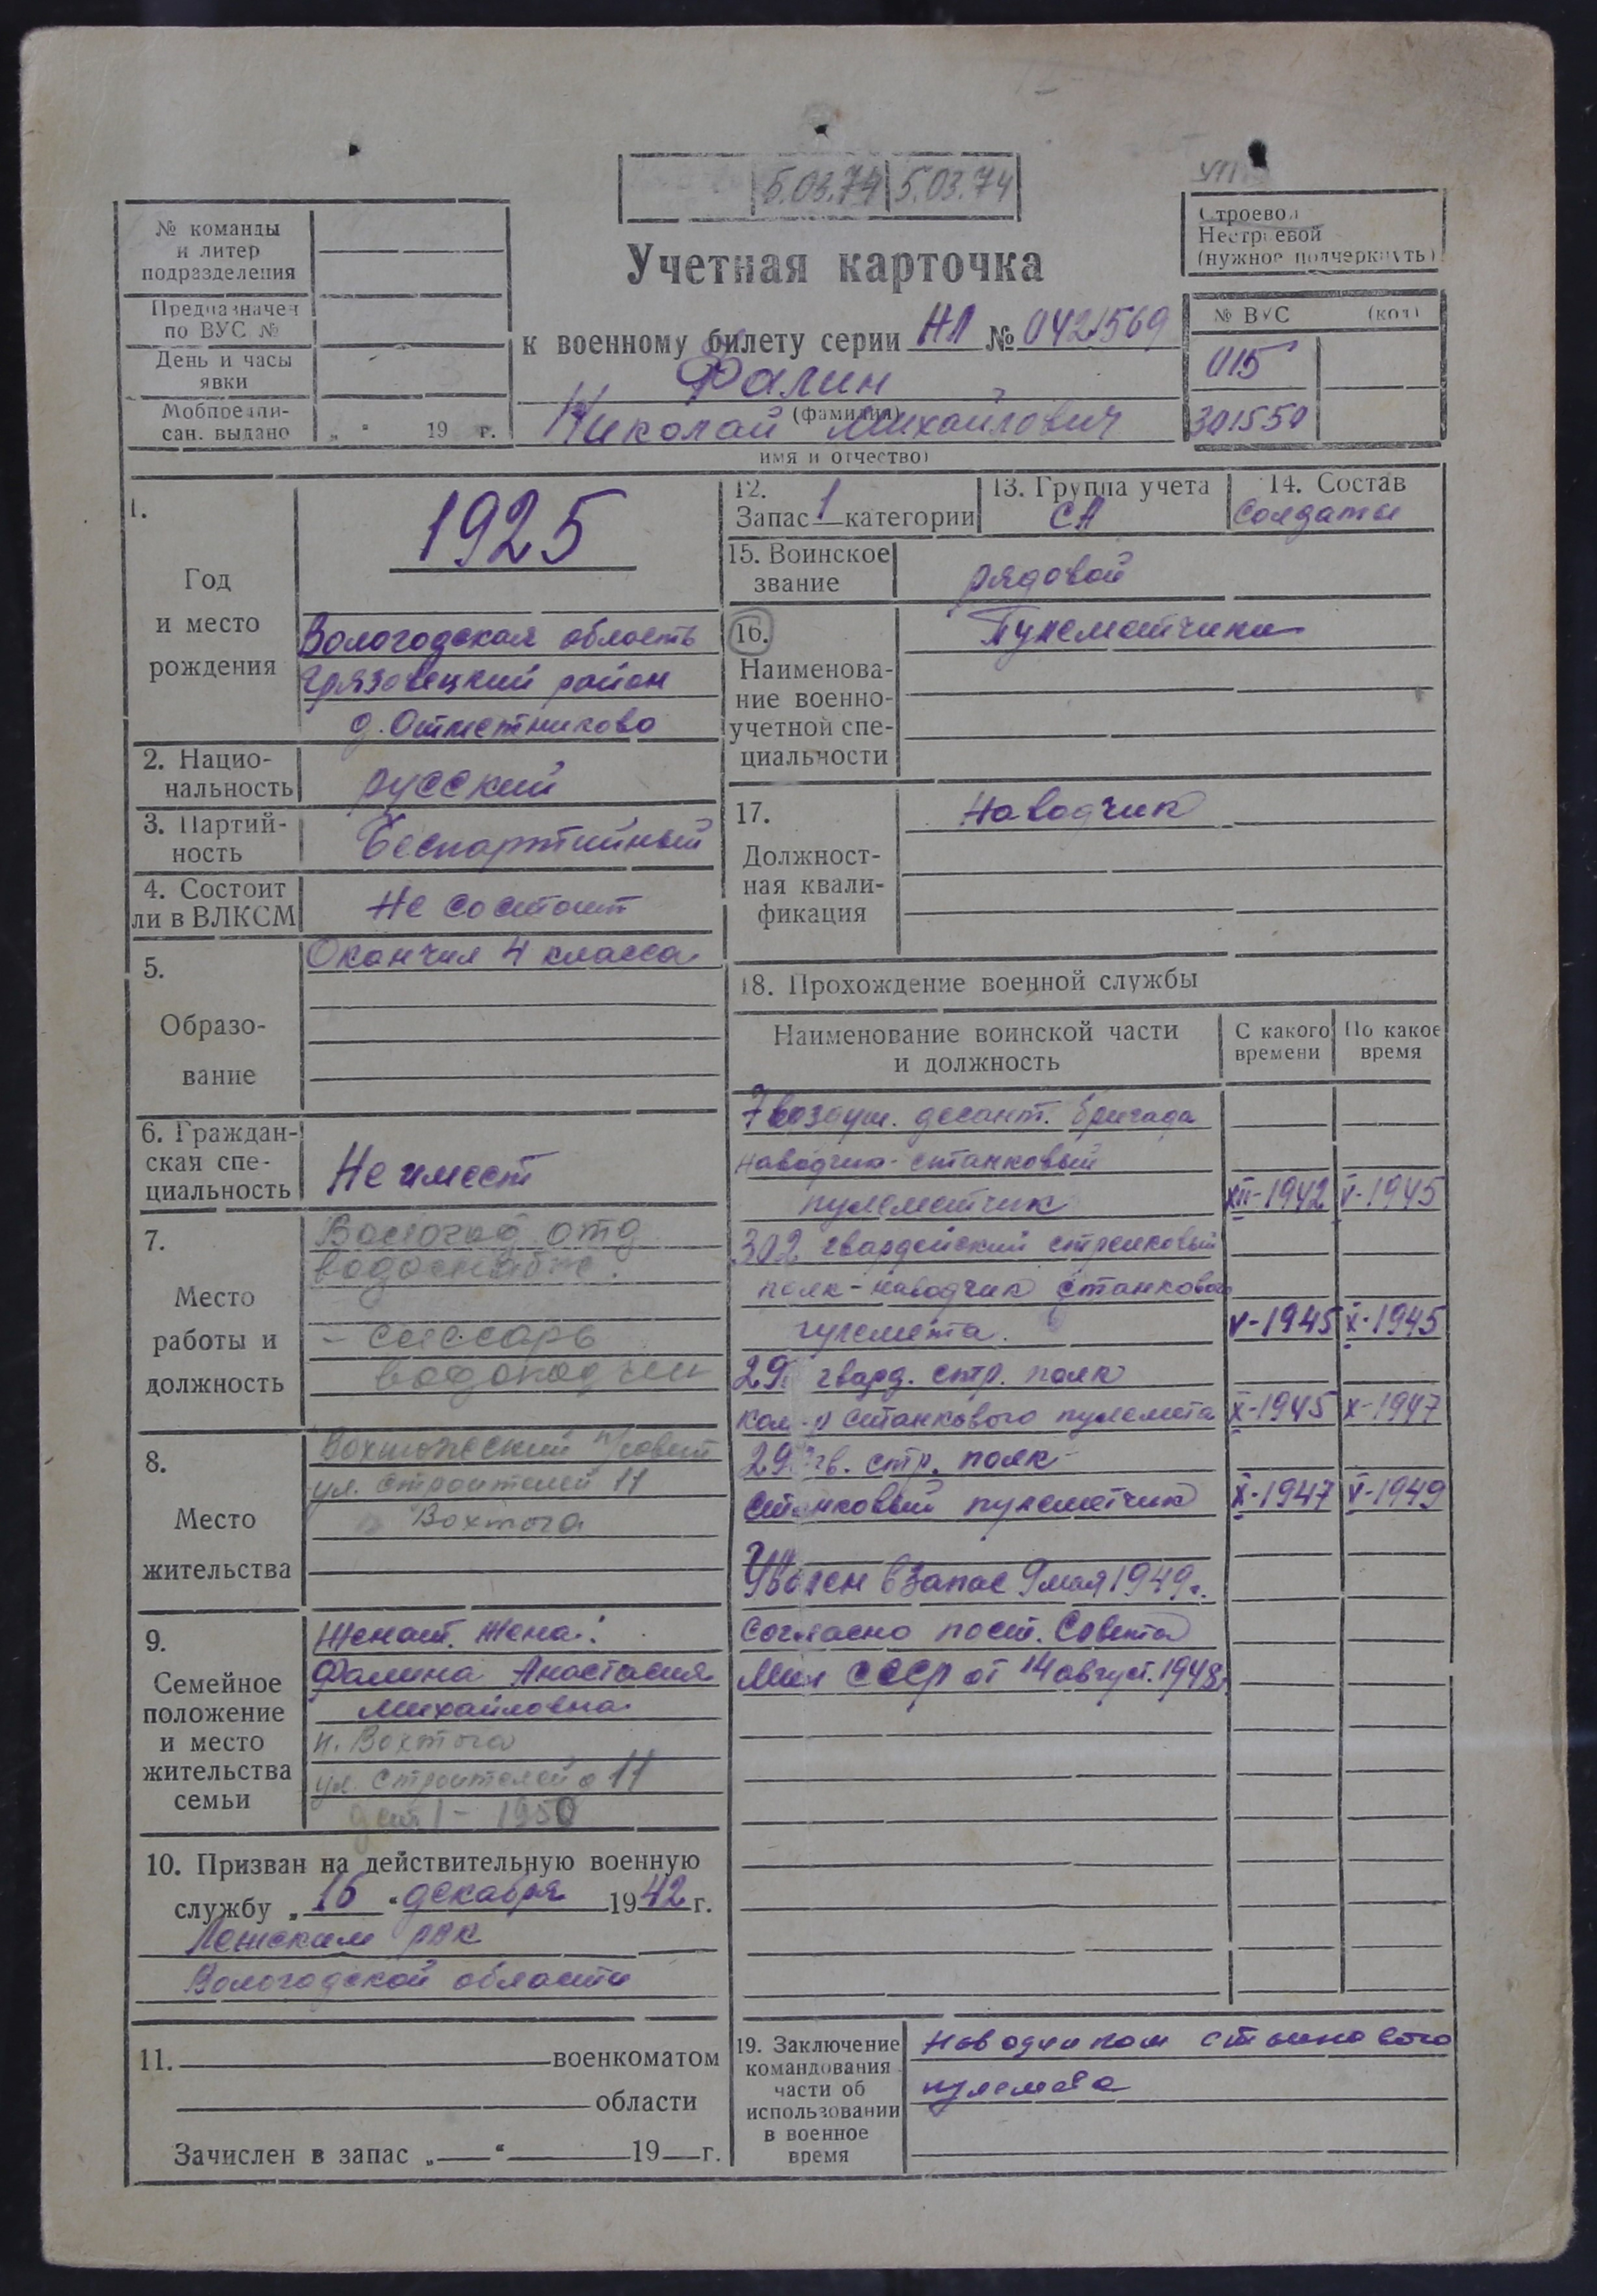 5.03.74 5.03.74
№ команды
и литер
подразделения
Предназначен
по ВУС №
День и часы
явки
Мобпредпи-
сан. выдано „ “ 19 г.
Учетная карточка
к военному билету серии НЛ № 0421569
Фалин
(фамилия)
Николай Михайлович
имя и отчество)
Строевой
Нестроевой
(нужное подчеркнуть)
№ ВУС (код)
015
301550
1.
Год
и место
рождения
1925
Вологодская область
Грязовецкий район
д. Отметниково
2. Нацио-
нальность
русский
3. Партий-
ность
Беспартийный
4. Состоит
ли в ВЛКСМ
Не состоит
5.
Образо-
вание
Окончил 4 класса
6. Граждан-
ская спе-
циальность
Не имеет
7.
Место
работы и
должность
отд
водоснабж.
- слесарь
8.
Место
жительства
Вохтожский п/совет
ул. Строителей 11
Вохтога
9.
Семейное
положение
и место
жительства
семьи
Женат. Жена:
Фалина Анастасия
Михайловна
п. Вохтога
ул. Строителей 11
1 - 1950
10. Призван на действительную военную
службу „16“ декабря 1942 г.
Лежским РВК
Вологодской области
11. военкоматом
области
Зачислен в запас „ “ 19 г.
12.
Запас 1 категории
13. Группа учета
СА
14. Состав
Солдаты
15. Воинское
звание
рядовой
16.
Наименова-
ние военно-
учетной спе-
циальности
Пулеметчики
17.
Должност-
ная квали-
фикация
Наводчик
18. Прохождение военной службы
Наименование воинской части
и должность
С какого
времени
По какое
время
7 воздуш. десант. бригада
наводчик-станковый
пулеметчик XII-1942 V-1945
302 гвардейский стрелковый
полк-наводчик станкового
пулемета. V-1945 X-1945
29 гвард. стр. полк
ком-р станкового пулемета X-1945 X-1947
29 гв. стр. полк
станковый пулеметчик X-1947 V-1949
Уволен в запас 9 мая 1949 г.
согласно пост. Совета
Мин СССР от 14 август. 1948 г.
19. Заключение
командования
части об
использовании
в военное
время
Наводчиком станкового
пулемета